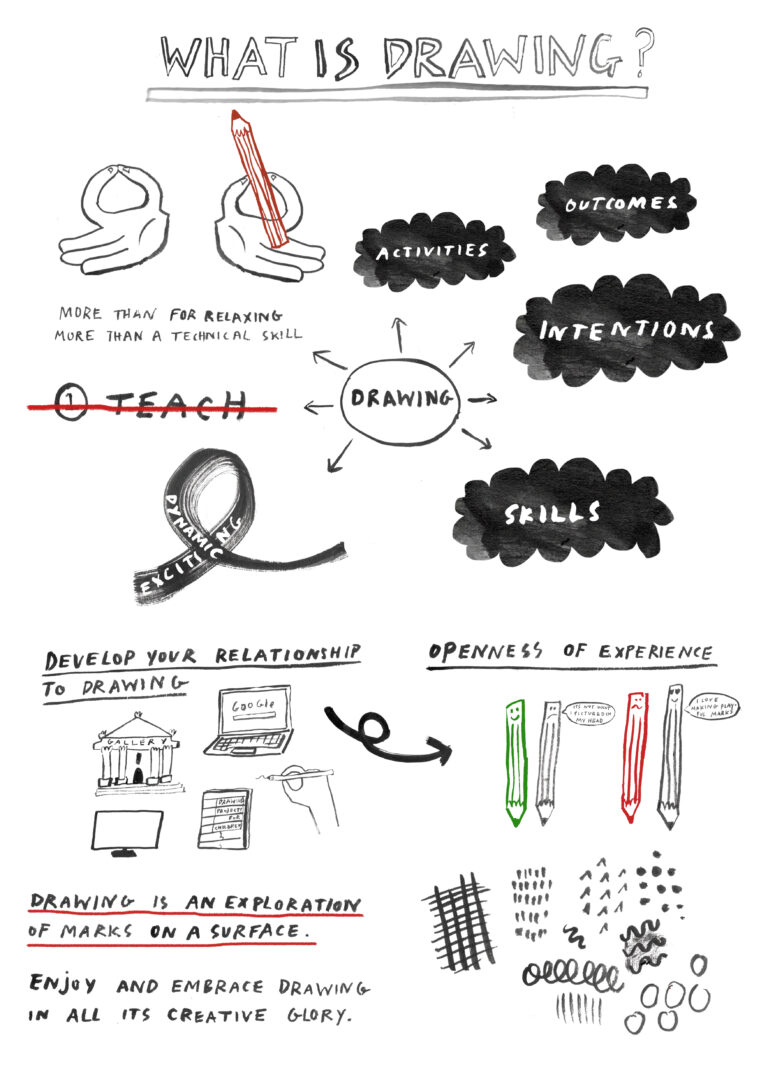 WHAT IS DRAWING?
OUTCOMES
ACTIVITIES
INTENTIONS
MORE THAN FOR RELAXING
MORE THAN A TECHNICAL SKILL
1 TEACH
DRAWING
DYNAMIC
EXCITING
SKILLS
DEVELOP YOUR RELATIONSHIP
TO DRAWING
GOOGLE
GALLERY
DRAWING
PROJECTS
FOR
CHILDREN
OPENNESS OF EXPERIENCE
ITS NOT WHAT
I PICTURED IN
MY HEAD
I LOVE
MAKING PLAY-
FUL MARKS
DRAWING IS AN EXPLORATION
OF MARKS ON A SURFACE.
ENJOY AND EMBRACE DRAWING
IN ALL ITS CREATIVE GLORY.